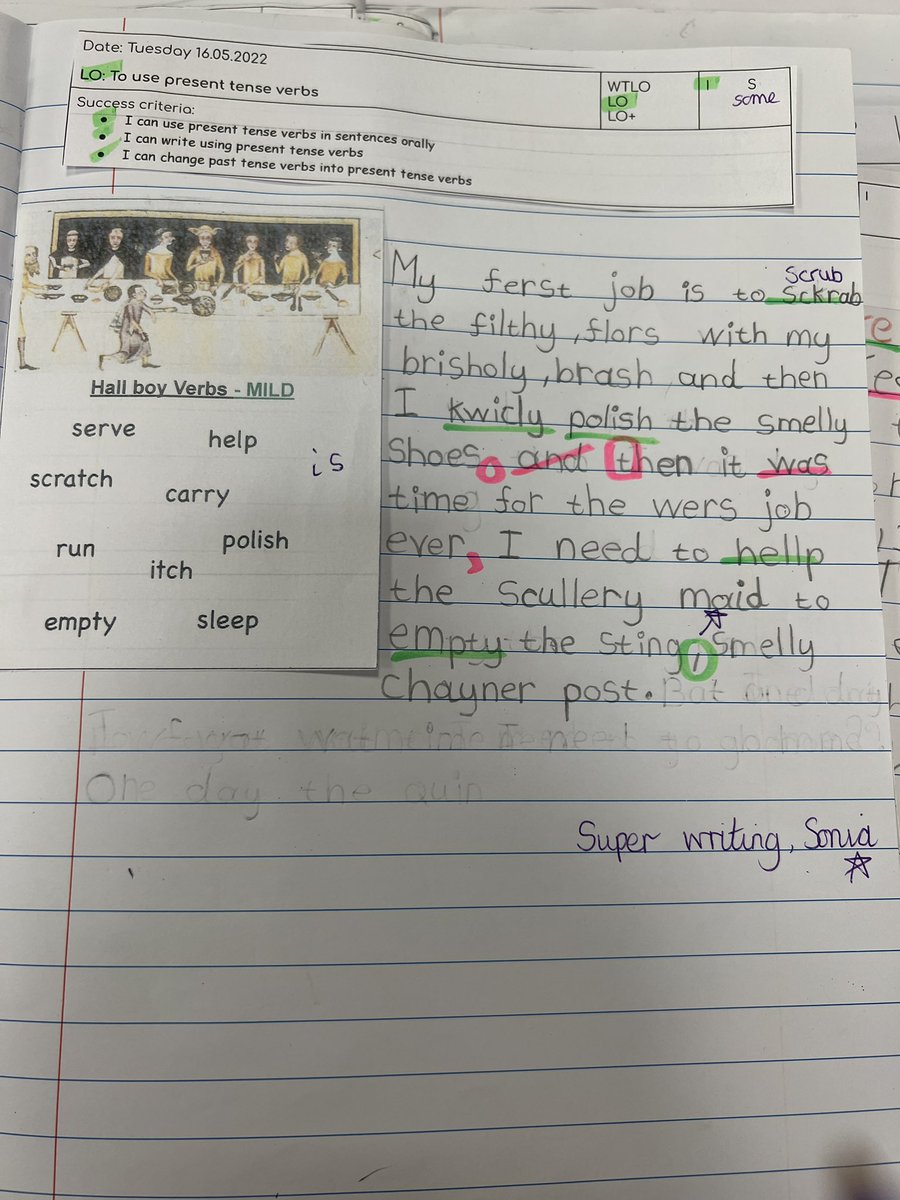 Date: Tuesday 16.05.2022
LO: To use present tense verbs
Success criteria:
• I can use present tense verbs in sentences orally
• I can write using present tense verbs
• I can change past tense verbs into present tense verbs
WTLO
LO
LO+
I
S
some
Hall boy Verbs - MILD
serve
help
scratch
carry
run
polish
itch
empty
sleep
is
Scrub
My ferst job is to Sckrab
the filthy, flors with my
brisholy, brash and then
I kwicly polish the smelly
Shoes. and then it was
time for the wers job
ever, I need to hellp
the Scullery maid to
empty the sting, Smelly
Chayner post. Bat one day
to
One day the quin
Super writing, Sonia